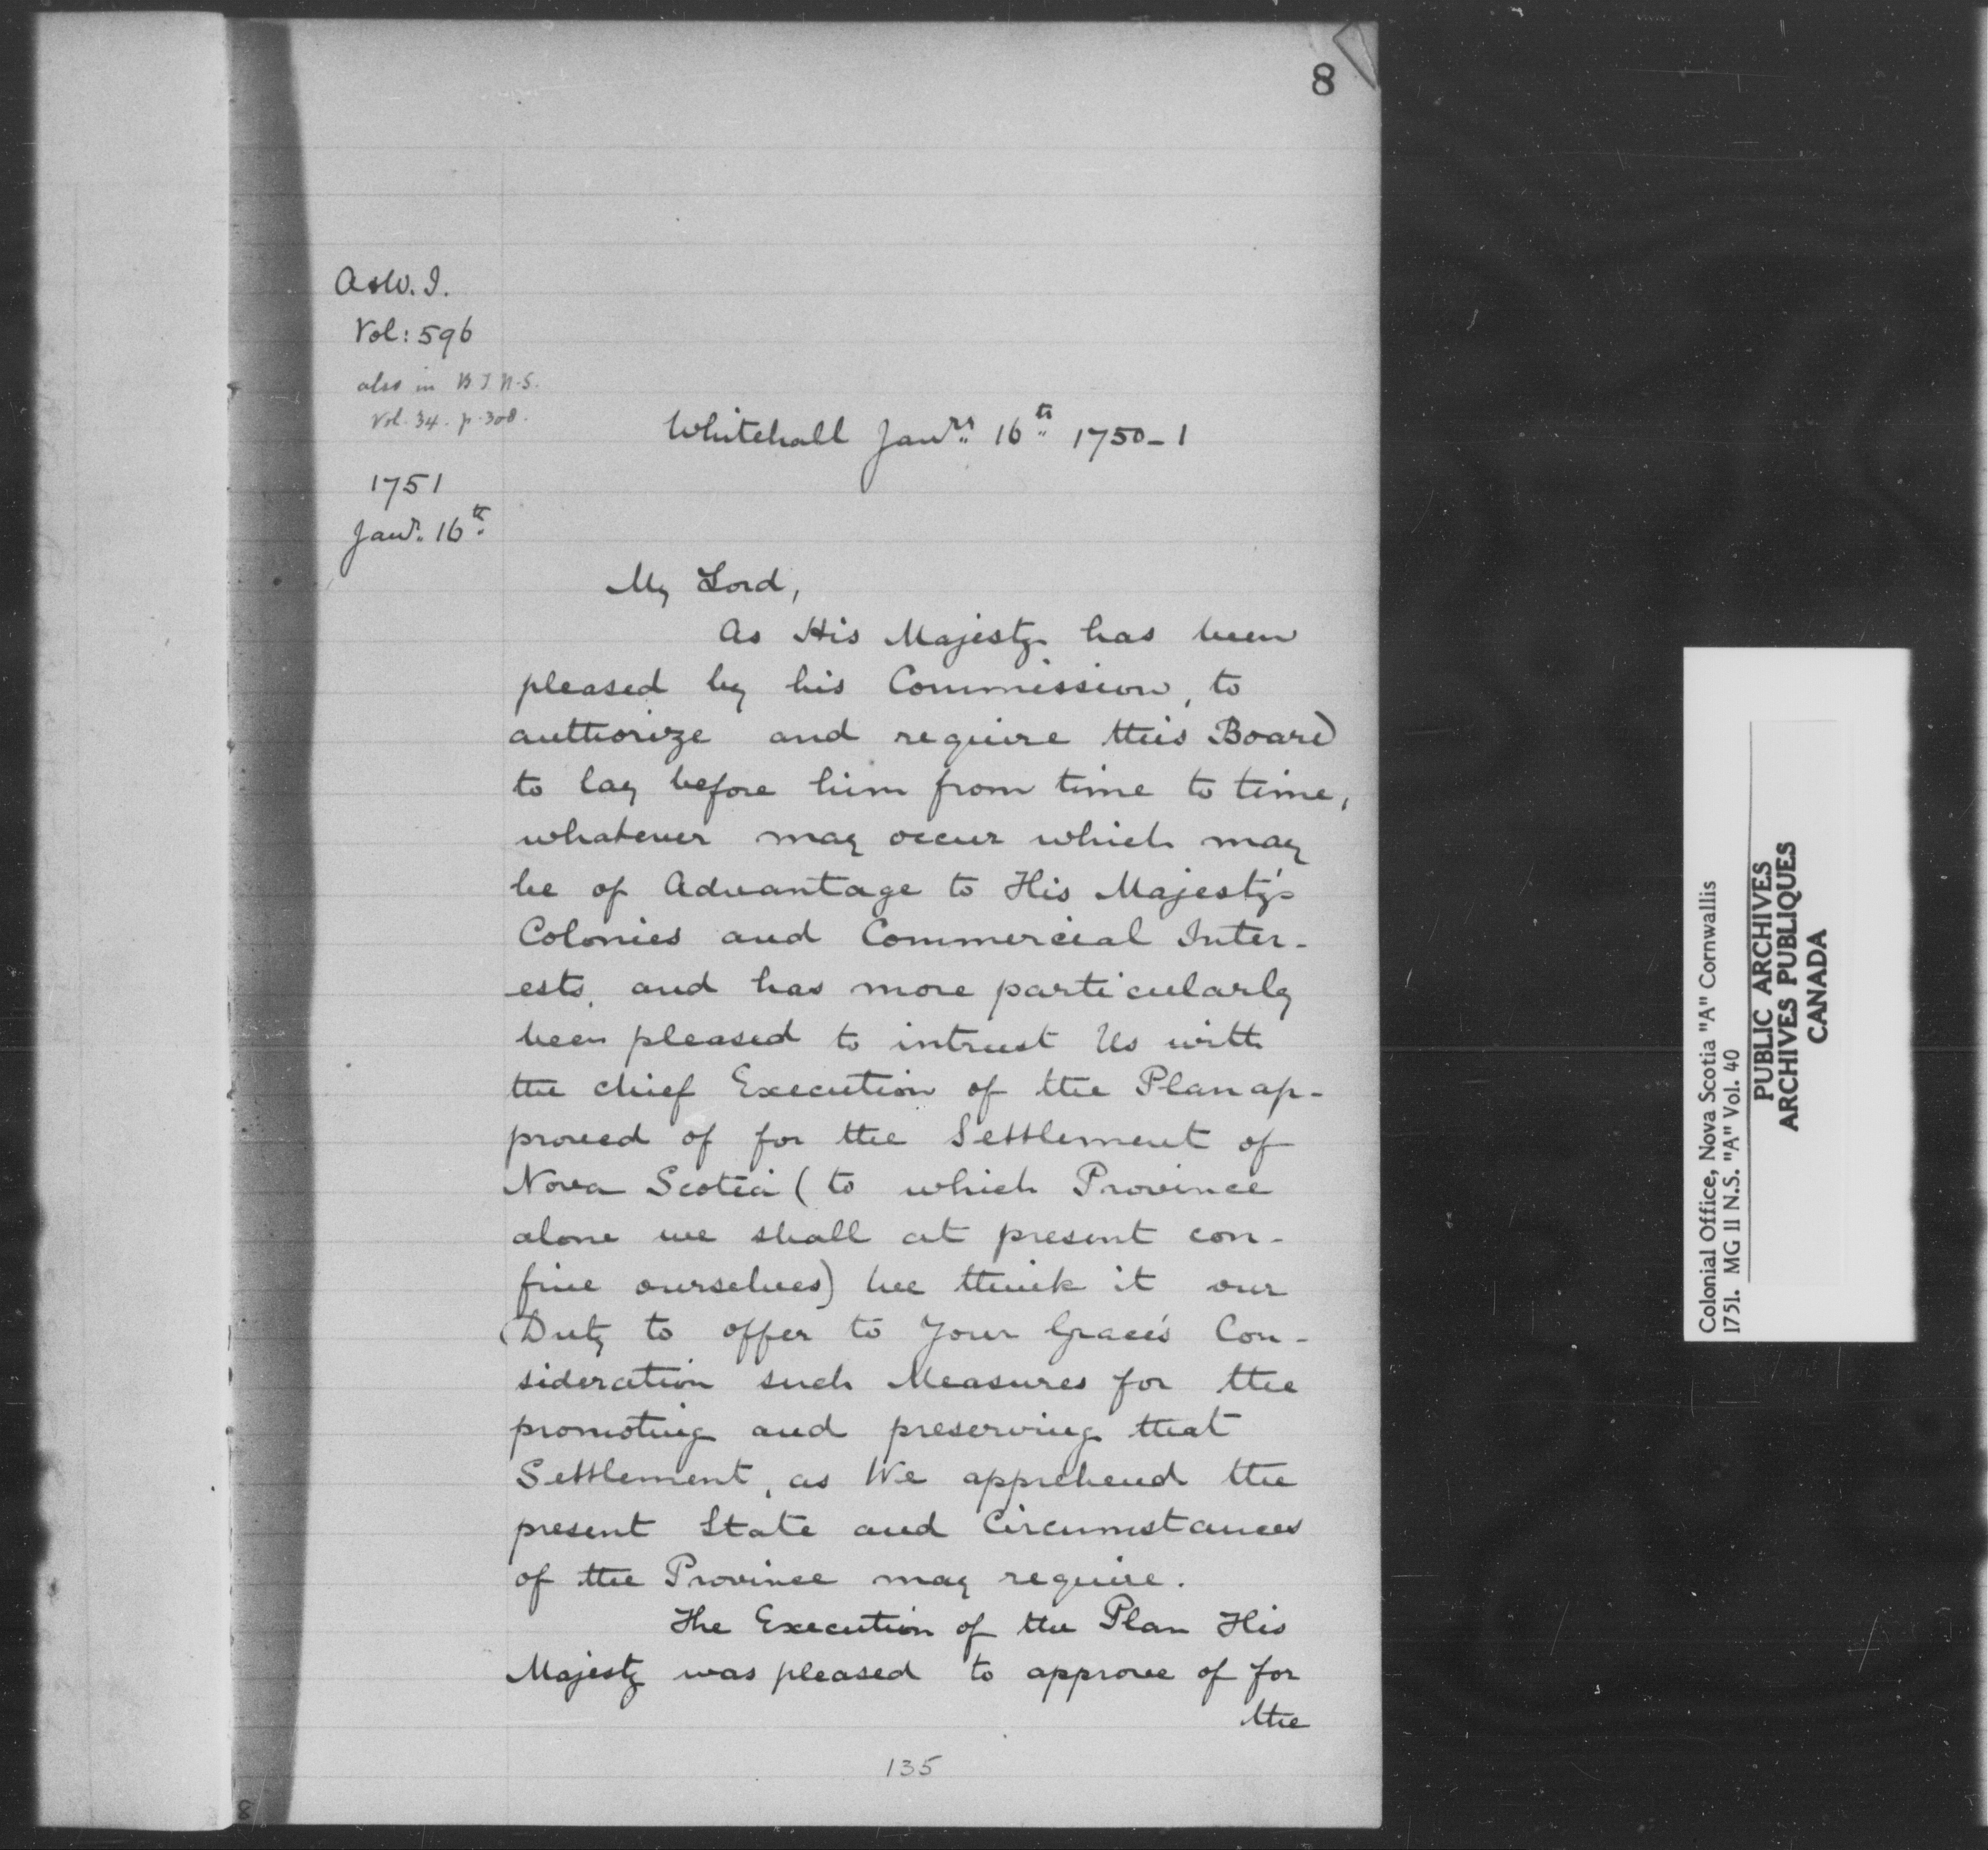 8
A & W. I.
Vol: 596
also in B. T. N. S.
Vol. 34. p. 308.
Whitehall Janry. 16th. 1750-1
1751
Janr. 16th.
My Lord,
As His Majesty has been
pleased by his Commission, to
authorize and require this Board
to lay before him from time to time,
whatever may occur which may
be of Advantage to His Majesty's
Colonies and Commercial Inter-
ests, and has more particularly
been pleased to intrust Us with
the chief Execution of the Plan ap-
proved of for the Settlement of
Nova Scotia (to which Province
alone we shall at present con-
fine ourselves) We think it our
Duty to offer to Your Grace's Con-
sideration such Measures for the
promoting and preserving that
Settlement, as We apprehend the
present State and Circumstances
of the Province may require.
The Execution of the Plan His
Majesty was pleased to approve of for
the
135
8
Colonial Office, Nova Scotia "A" Cornwallis
1751. MG 11 N.S. "A" Vol. 40
PUBLIC ARCHIVES
ARCHIVES PUBLIQUES
CANADA